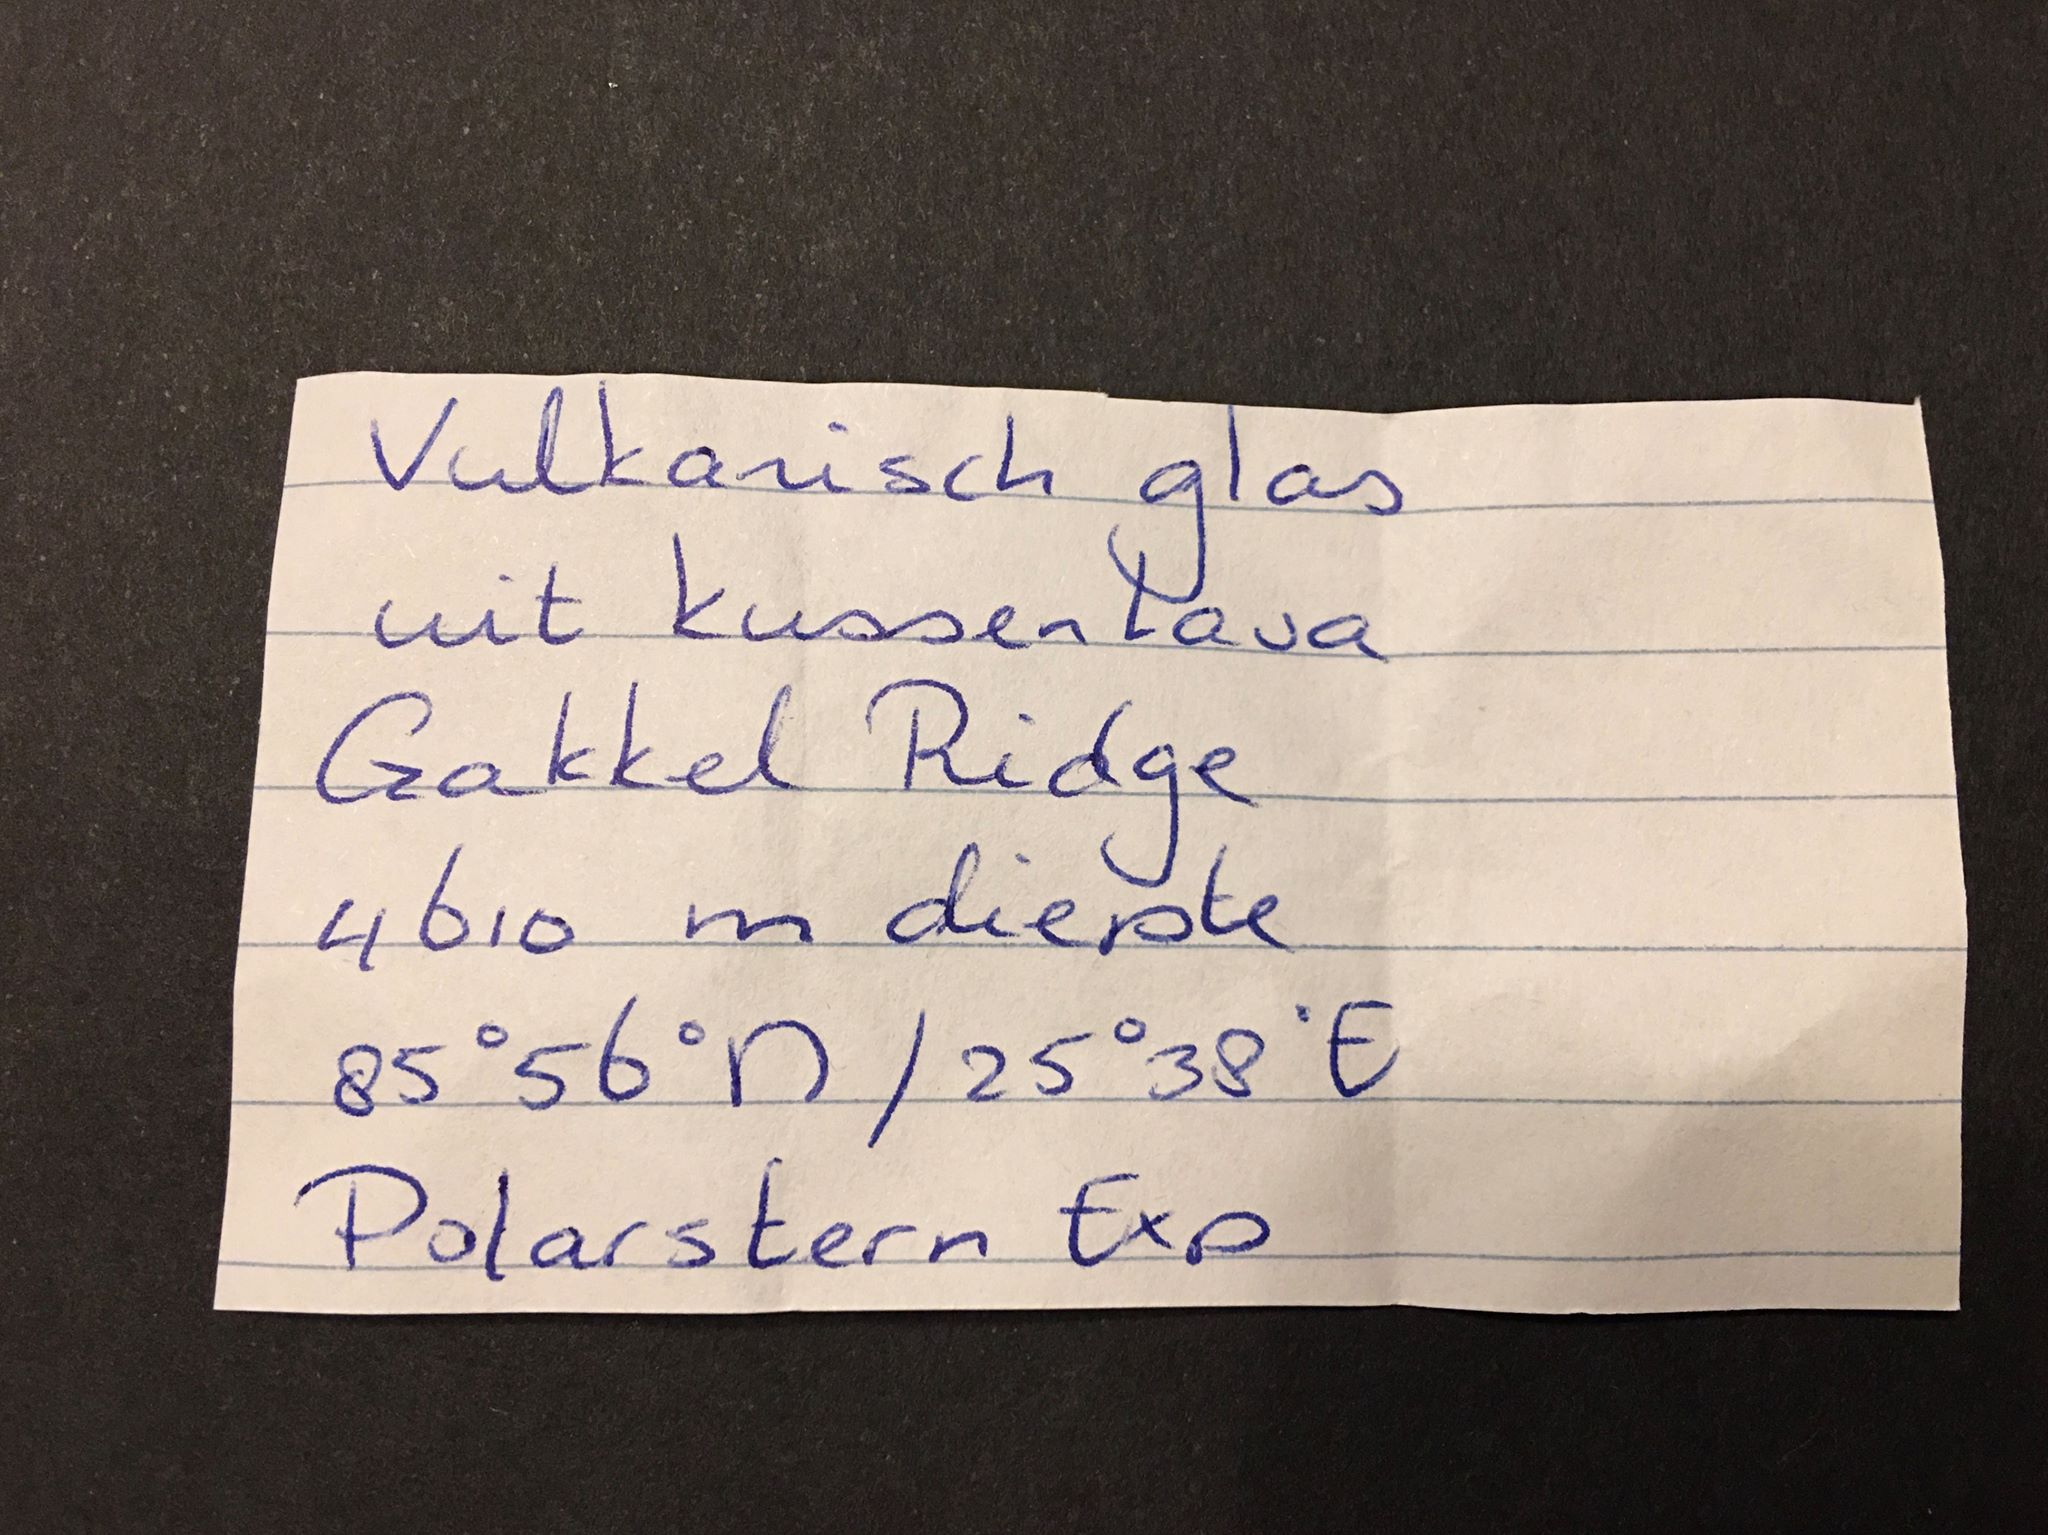 Vulkanisch glas
uit kussenlava
Gakkel Ridge
4610 m diepte
85°56°N / 25°38'E
Polarstern Exp